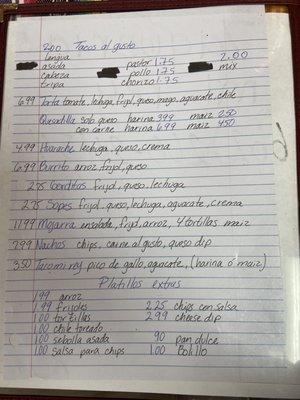 2.00 Tacos al gusto
lengua
asada pastor 1.75 2.00
cabeza pollo 1.75 mix
tripa chorizo 1.75
6.99 Torta tomate, lechuga, frijol, queso, mayo, aguacate, chile
Quesadilla solo queso harina 3.99 maiz 2.50
con carne harina 6.99 maiz 4.50
4.99 Huarache lechuga, queso, crema
6.99 Burrito arroz, frijol, queso
2.75 Gorditas frijol, queso, lechuga
2.75 Sopes frijol, queso, lechuga, aguacate, crema
11.99 Mojarra ensalada, frijol, arroz, 4 tortillas maiz
7.99 Nachos chips, carne al gusto, queso dip
3.50 Taco mi rey pico de gallo, aguacate, (harina ó maiz)
Platillos extras
1.99 arroz
1.99 frijoles 2.25 chips con salsa
1.00 tortillas 2.99 cheese dip
1.00 chile toreado
1.00 sebolla asada 90 pan dulce
1.00 salsa para chips 1.00 Bolillo